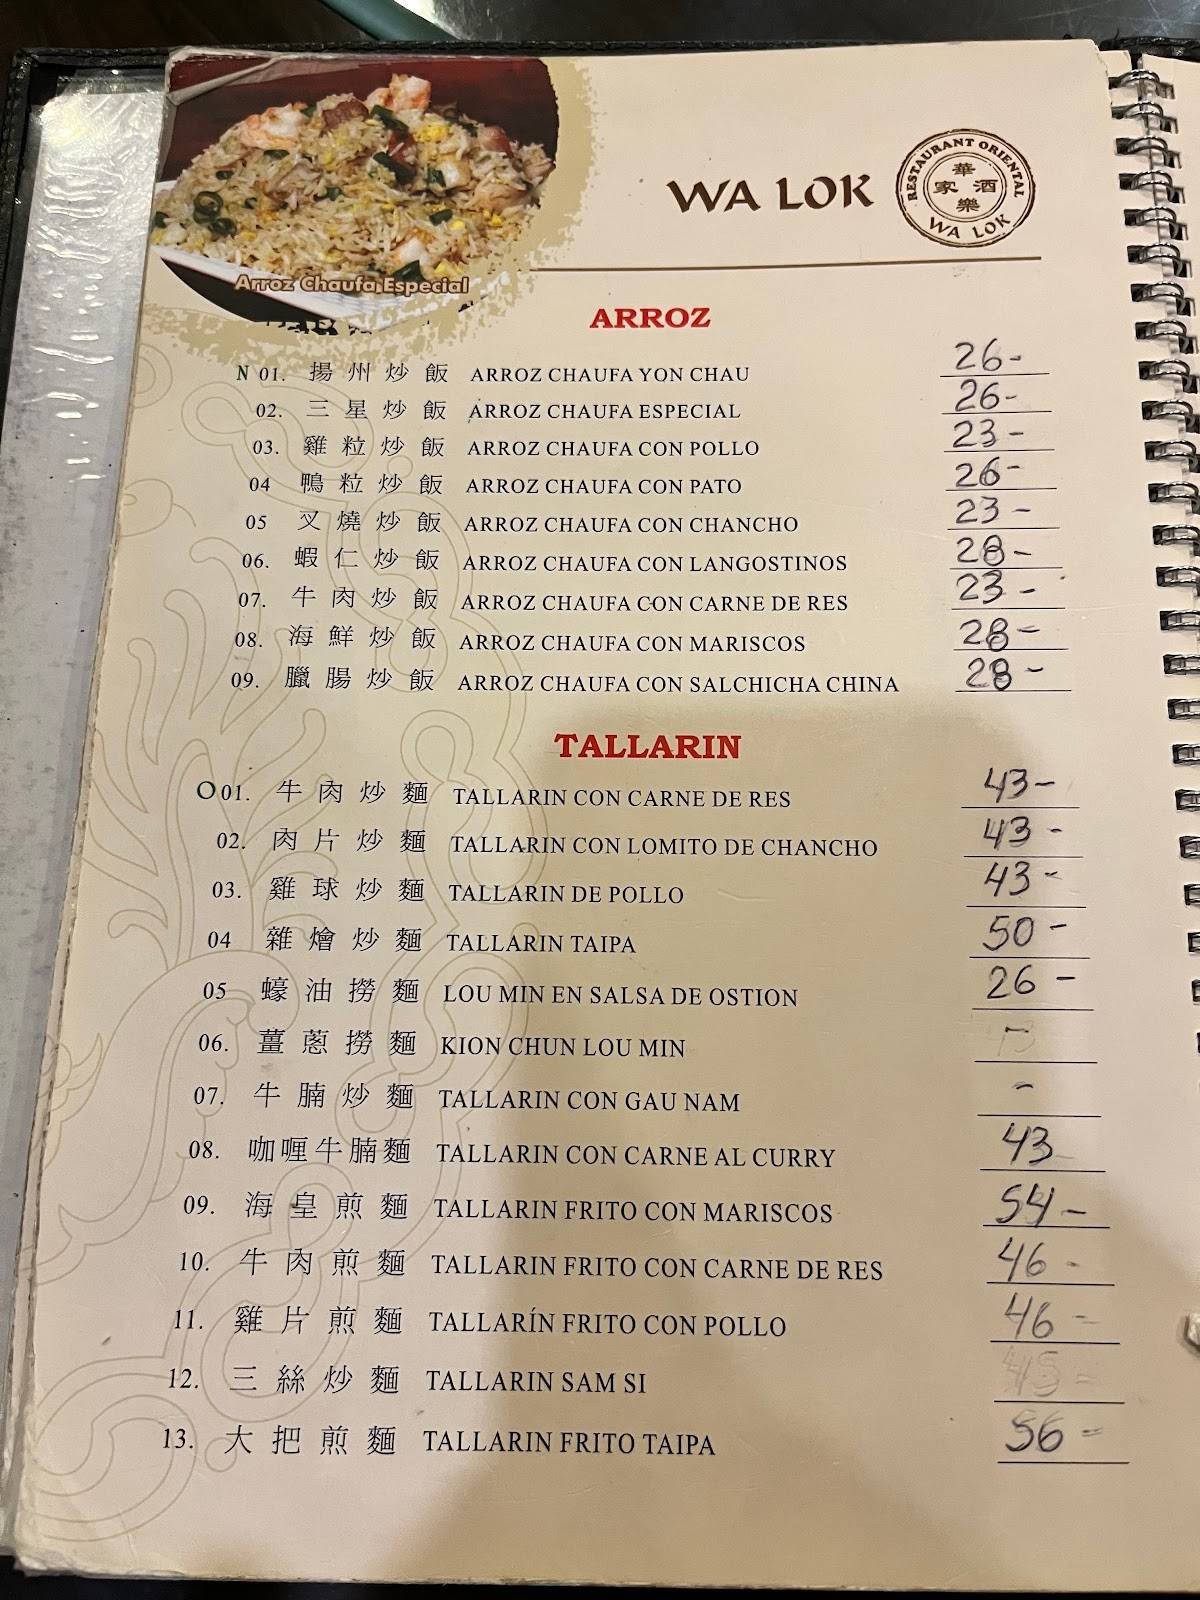 Arroz Chaufa Especial
WA LOK
RESTAURANT ORIENTAL
華
家 酒
樂
WA LOK
ARROZ
N 01. 揚州炒飯 ARROZ CHAUFA YON CHAU 26-
02. 三星炒飯 ARROZ CHAUFA ESPECIAL 26-
03. 雞粒炒飯 ARROZ CHAUFA CON POLLO 23-
04 鴨粒炒飯 ARROZ CHAUFA CON PATO 26-
05 叉燒炒飯 ARROZ CHAUFA CON CHANCHO 23-
06. 蝦仁炒飯 ARROZ CHAUFA CON LANGOSTINOS 28-
07. 牛肉炒飯 ARROZ CHAUFA CON CARNE DE RES 23-
08. 海鮮炒飯 ARROZ CHAUFA CON MARISCOS 28-
09. 臘腸炒飯 ARROZ CHAUFA CON SALCHICHA CHINA 28-
TALLARIN
O 01. 牛肉炒麵 TALLARIN CON CARNE DE RES 43-
02. 肉片炒麵 TALLARIN CON LOMITO DE CHANCHO 43-
03. 雞球炒麵 TALLARIN DE POLLO 43-
04 雜燴炒麵 TALLARIN TAIPA 50-
05 蠔油撈麵 LOU MIN EN SALSA DE OSTION 26-
06. 薑蔥撈麵 KION CHUN LOU MIN
07. 牛腩炒麵 TALLARIN CON GAU NAM -
08. 咖喱牛腩麵 TALLARIN CON CARNE AL CURRY 43
09. 海皇煎麵 TALLARIN FRITO CON MARISCOS 54-
10. 牛肉煎麵 TALLARIN FRITO CON CARNE DE RES 46-
11. 雞片煎麵 TALLARÍN FRITO CON POLLO 46-
12. 三絲炒麵 TALLARIN SAM SI
13. 大把煎麵 TALLARIN FRITO TAIPA 56-